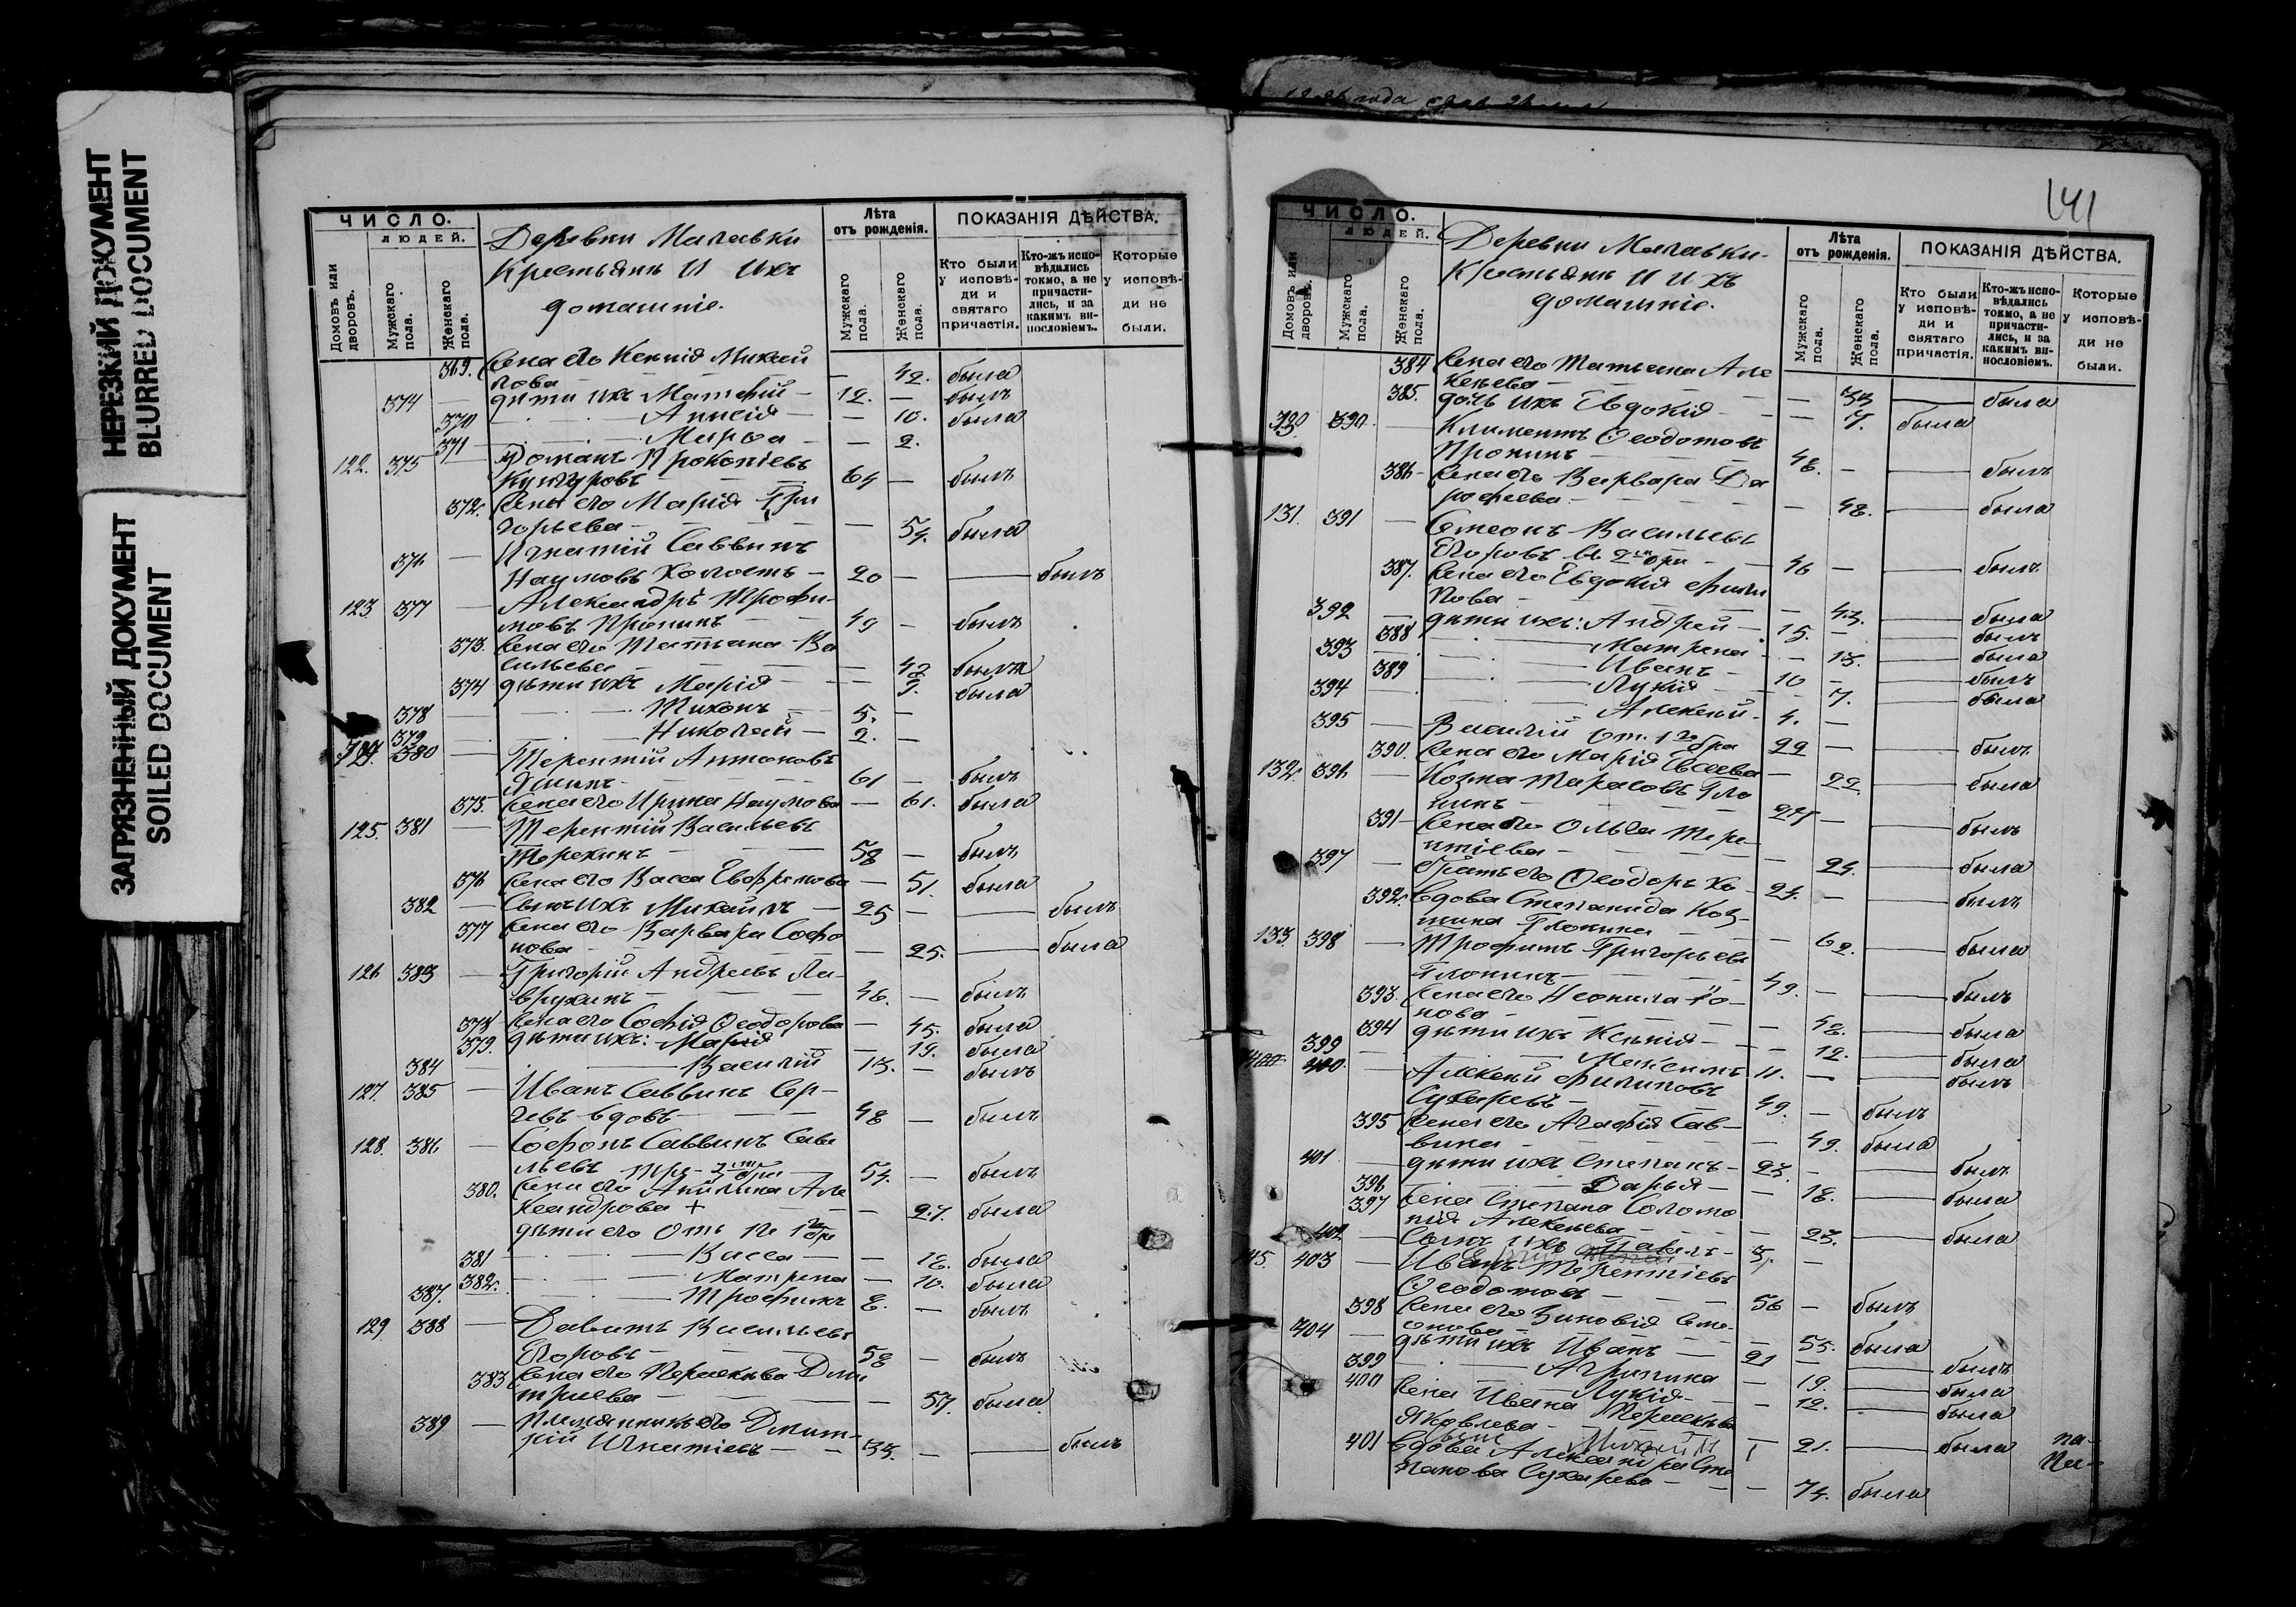 НЕРЕЗКИЙ ДОКУМЕНТ
BLURRED DOCUMENT
ЗАГРЯЗНЕННЫЙ ДОКУМЕНТ
SOILED DOCUMENT
ЧИСЛО.
ЛЮДЕЙ.
Домовъ или дворовъ.
Мужскаго пола.
Женскаго пола.
Деревни Малавки
Крестьянѣ и ихъ
домашніе.
Лѣта
отъ рожденія.
Мужскаго пола.
Женскаго пола.
ПОКАЗАНІЯ ДѢЙСТВА.
Кто были у исповѣди и святаго причастія.
Кто-жъ исповѣдались токмо, а не причастились, и за какимъ винословіемъ.
Которые у исповѣди не были.
369. Жена его Ксенія Михай
лова — — 42. была
374 — дѣти ихъ Матфій — 12. — былъ
370 — Анисія — — 10. была
371 — Марѳа — — 2.
122. 375 — Романъ Прокопіевъ
64 — былъ
372. Жена его Марія Гри
горьева — — 54. была
376 — Игнатій Саввинъ
Наумовъ холостъ — 20 — — былъ
123 377 — Александръ Трофи-
мовъ Пронинъ — 49 — былъ
373. Жена его Татьяна Ва
сильева — — 42
374 дѣти ихъ Марія — — 9. была
378 — Тихонъ — 5. —
379 — Николай — 2. —
380 — Терентій Антоновъ
61 — былъ
375. Жена его Ирина Наумова — 61. была
125. 381 — Терентій Васильевъ
Терехинъ — 58 — былъ
376 Жена его Васса Евфремова — 51. была
382 — Сынъ ихъ Михаилъ — 25 — — былъ
377 Жена его Варвара Софо
нова — — 25. — была
126 383 — Григорій Андреевъ Ла-
врухинъ — 46. — былъ
378 Жена его Софія Ѳеодорова — 45. была
379. дѣти ихъ: Марія — 19. была
384 — Василій 13. — былъ
127. 385 — Иванъ Саввинъ Сер-
вдовъ — 48 — былъ
128. 386 — Софонъ Саввинъ Саве
льевъ 54. — былъ
380. Жена его Акилина Але
ксандрова + — 27. была
дѣти его отъ 1го бра
381 — Васса — — 18. была
382. — Матрена — 10. была
387. — Трофимъ 8. — былъ
129 388 — Давитъ Васильевъ
Егоровъ — 58 — былъ
383 Жена его Параскева Дми
тріева — — 57. была
389 — Племянникъ его Дмит-
рій Игнатіевъ — 33. — — былъ
141
ЧИСЛО.
ЛЮДЕЙ.
Домовъ или дворовъ.
Мужскаго пола.
Женскаго пола.
Деревни Малавки.
Крестьянѣ и ихъ
домашніе.
Лѣта
отъ рожденія.
Мужскаго пола.
Женскаго пола.
ПОКАЗАНІЯ ДѢЙСТВА.
Кто были у исповѣди и святаго причастія.
Кто-жъ исповѣдались токмо, а не причастились, и за какимъ винословіемъ.
Которые у исповѣди не были.
384 Жена его Татьяна Але
ксѣева — — 33 — была
385. дочь ихъ Евдокія — — 7. была
130 390. — Климентъ Ѳеодотовъ
Пронинъ — 48. — — былъ
386 Жена его Варвара До
рофеева — — 48. — была
131. 391 — Симеонъ Васильевъ
Егоровъ 46 — — былъ
387. Жена его Евдокія Фили
пова — — 43. — была
392 — дѣти ихъ: Андрей — 15. — — былъ
388 — Матрена — — 13. — была
393 — Иванъ — 10 — — былъ
389 — Лукія — — 7. — была
394 — Алексѣй. 4. —
395 — Василій отъ 1го бра 22 — — былъ
390. Жена его Марія Евсеева — 22. — была
132. 396 — Козма Тарасовъ Гло
нинъ — 27 — — былъ
391 — Жена его Ольга Тере-
нтіева — — 24. — была
397 — братъ его Ѳеодоръ хо — 24. — — былъ
392. Вдова Степанида Коз-
мина — — 62. — была
133. 398 — Трофимъ Григорьевъ
49. — — былъ
393. Жена его Неонила Фо-
нова — — 48. — была
394 дѣти ихъ Ксенія — — 12. — была
399 — Максимъ 11. — — былъ
400. — Алексѣй Филиповъ
Сухаревъ — 49. — былъ
395 Жена его Агафія Сав-
вина — — 49. была
401 — дѣти ихъ Степанъ — 23. — — былъ
396 — Дарья — — 18. — была
397 Жена Степана Соломо
нія Алексѣева — — 23. — была
402 — Сынъ ихъ Павелъ — 3. —
403 — Иванъ Терентіевъ
Ѳеодотовъ — 56 — былъ
398 Жена его Зиновія Симе
онова — — 55. была
404 — дѣти ихъ Иванъ — 21 — — былъ
399 — Агрипина — 19. — была
400 — Лукія — — 12. — была
Жена Ивана Параскева
Яковлева — — 21. — была
401 Вдова Александра Сте
панова Сухарева — — 74. была